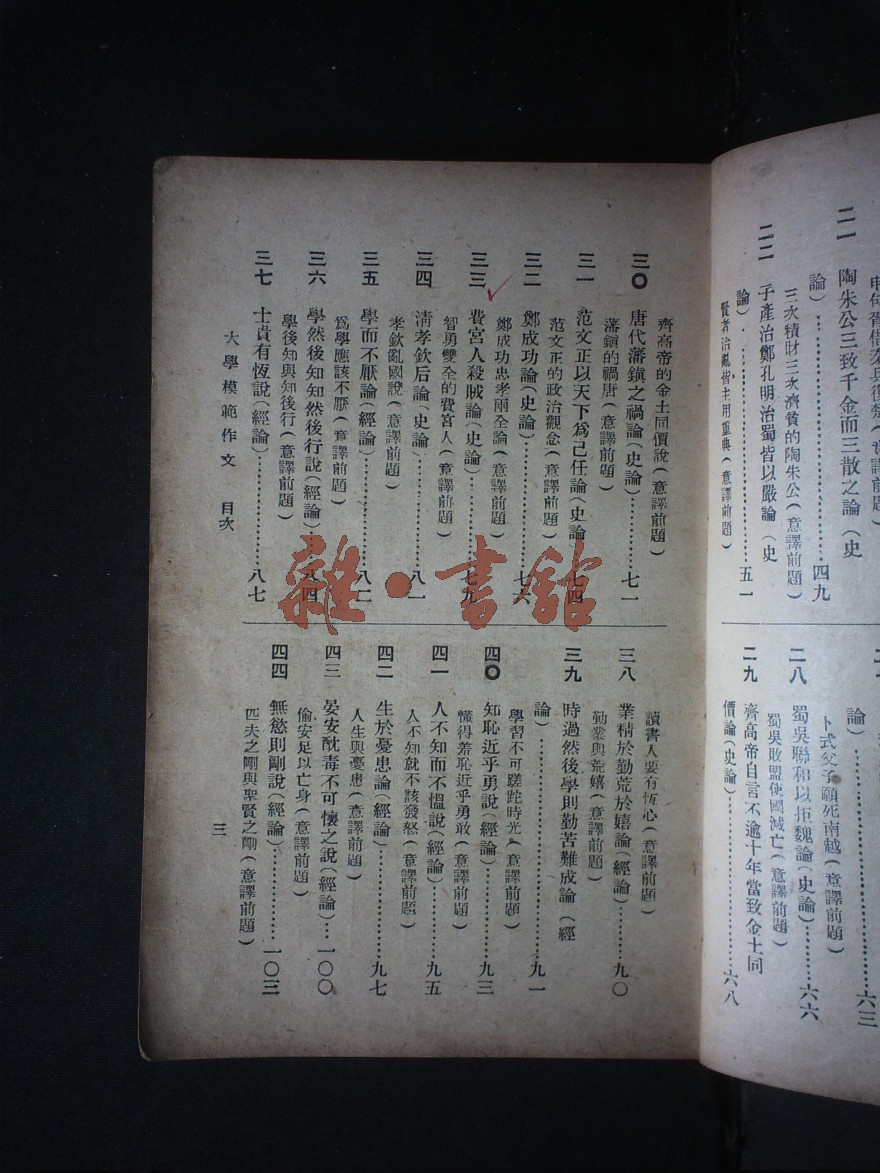 二一 陶朱公三致千金而三散之論(史
論)……四九
三次積財三次濟貧的陶朱公(意譯前題)
二二 子產治鄭孔明治蜀皆以嚴論(史
論)……五一
賢者治亂皆主用重典(意譯前題)
論)……六三
卜式父子願死南越(意譯前題)
二八 蜀吳聯和以拒魏論(史論)……六六
蜀吳敗盟使國滅亡(意譯前題)
二九 齊高帝自言不逾十年當致金土同
價論(史論)……六八
齊高帝的金土同價說(意譯前題)
三〇 唐代藩鎮之禍論(史論)……七一
藩鎮的禍唐(意譯前題)
三一 范文正以天下爲己任論(史論)……七四
范文正的政治觀念(意譯前題)
三二 鄭成功論(史論)……七六
鄭成功忠孝兩全論(意譯前題)
三三 費宮人殺賊論(史論)……七九
智勇雙全的費宮人(意譯前題)
三四 清孝欽后論(史論)……八一
孝欽亂國說(意譯前題)
三五 學而不厭論(經論)……八二
爲學應該不厭(意譯前題)
三六 學然後知知然後行說(經論)……八四
學後知與知後行(意譯前題)
三七 士貴有恆說(經論)……八七
大學模範作文 目次
讀書人要有恆心(意譯前題)
三八 業精於勤荒於嬉論(經論)……九〇
勤業與荒嬉(意譯前題)
三九 時過然後學則勤苦難成論(經
論)……九一
學習不可蹉跎時光(意譯前題)
四〇 知恥近乎勇說(經論)……九三
懂得羞恥近乎勇敢(意譯前題)
四一 人不知而不慍說(經論)……九五
人不知就不該發怒(意譯前題)
四二 生於憂患論(經論)……九七
人生與憂患(意譯前題)
四三 晏安酖毒不可懷之說(經論)……一〇〇
偷安足以亡身(意譯前題)
四四 無慾則剛說(經論)……一〇三
匹夫之剛與聖賢之剛(意譯前題)
三
雜·書館